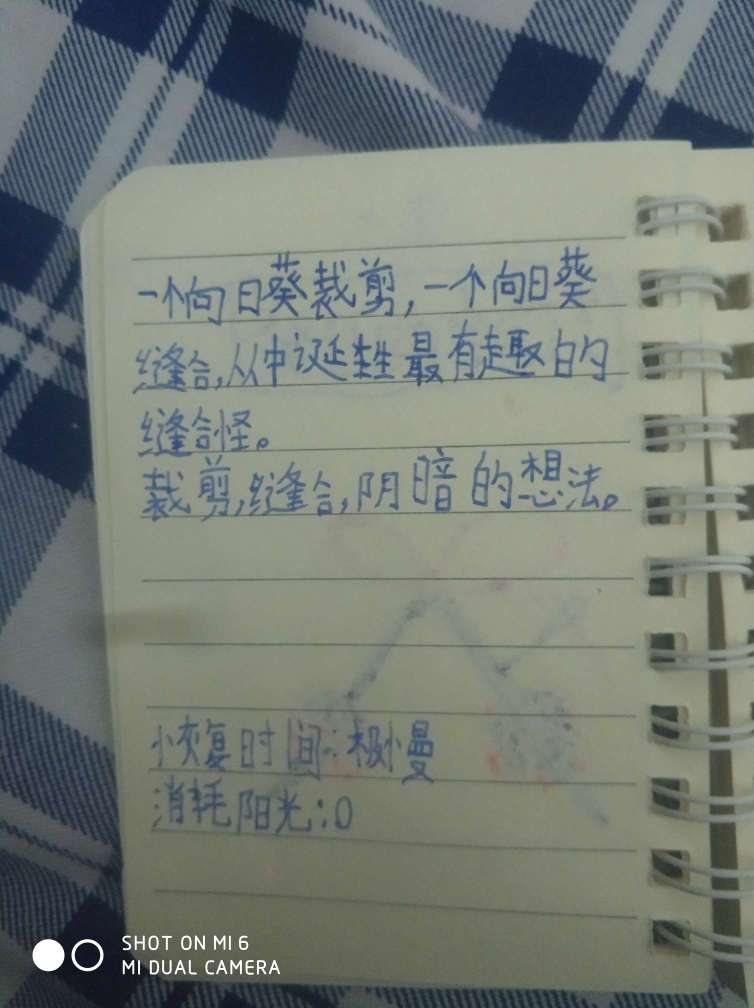 一个向日葵裁剪,一个向日葵
缝合,从中诞生最有趣的
缝合怪。
裁剪,缝合,阴暗的想法。
恢复时间:极慢
消耗阳光:0
SHOT ON MI 6
MI DUAL CAMERA